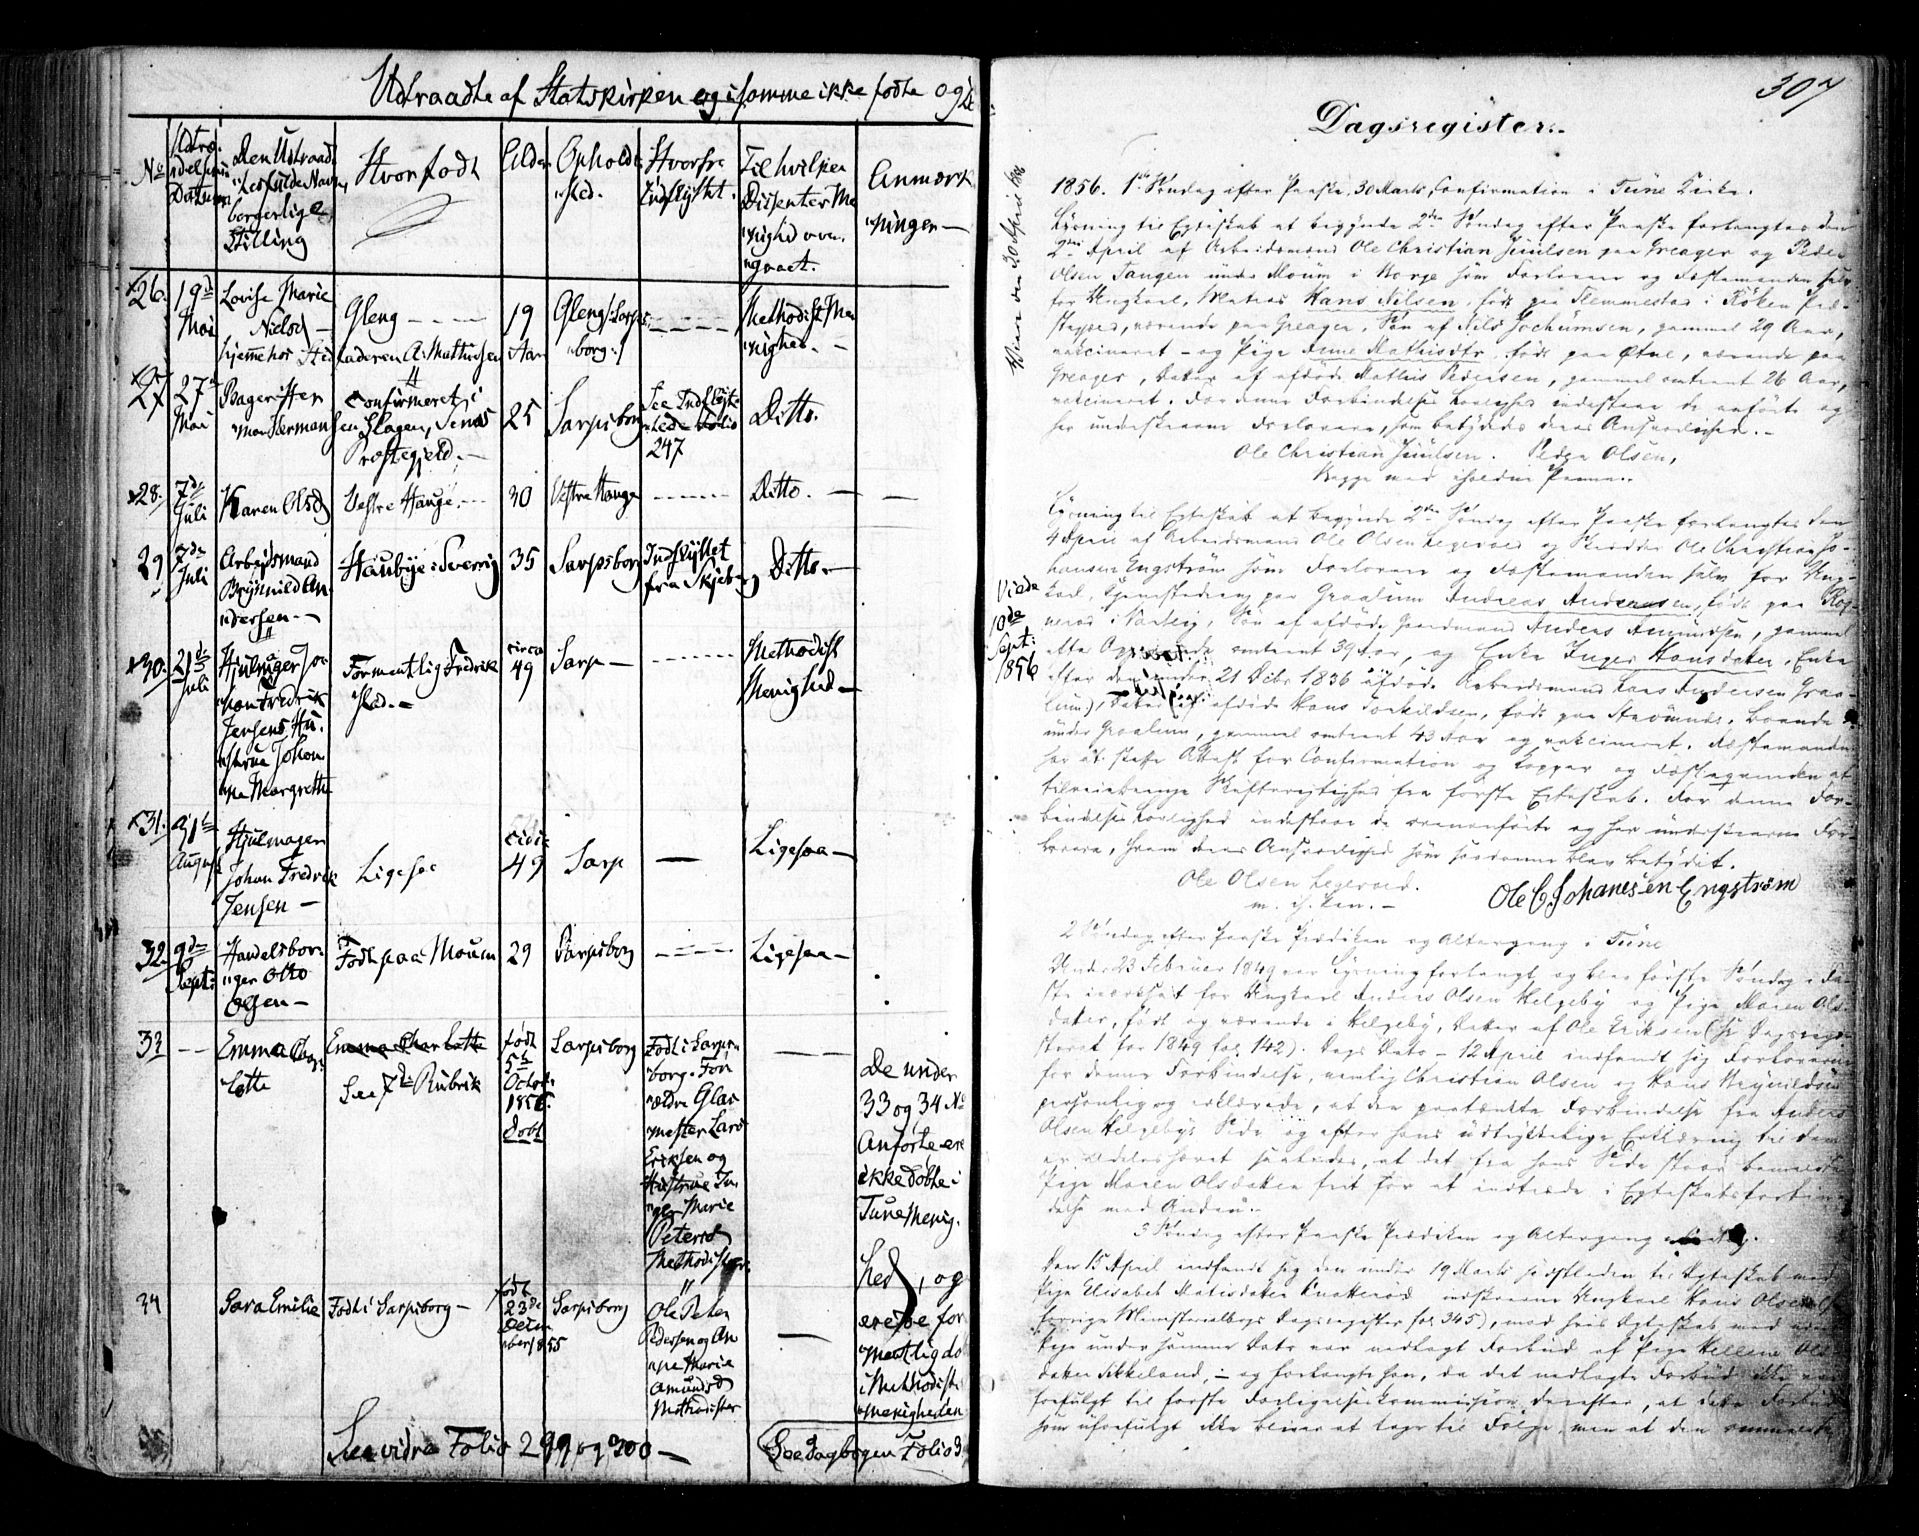 Udtraadte af Statskirken og i samme ikke fødte og
No
Udtræ-
delsens
Datum
Den Udtraad-
tes fulde Navn,
borgerlige
Stilling
Hvor født
Alder
Opholds-
sted.
Hvorfra
Indflyttet.
Til hvilken
Dissenter Me-
nighed over-
gaaet.
Anmærk-
ninger
26.
19de
Mai
Lovise Marie
Nielsd
hjemme hos Stedfaderen A: Mathiesen
Gleng
19
Aar
Gleng /: Sarps-
borg :/
Methodist Me-
nighed.
27
27de
Mai
Bager
Herman
Confirmeret i
Slagen, Sems
Præstegjeld.
25
Sarpsborg
See Indflytte-
Folio
247
Ditto.
28.
7de
Juli
Karen Olsd
Vestre Hauge
30
Vestre Hauge
Ditto.
29
7de
Juli
Arbeidsmand
Brynnild An-
dersen
i Sverrig
35
Sarpsborg
Indflyttet
fra Skjeberg
Ditto
30.
21de
Juli
Hjulmager Jo-
han Fredrik
Jensens Hu-
strue Johan-
ne Margrethe
Formentlig Fredrik-
stad.
circa
49
Sarp
Methodist
Menighed
31.
August
Hjulmager
Johan Fredrik
Jensen
Ligesaa
49
Sarp
Ligesaa
32.
9de
Sept:
Handelsbor-
ger Otto
Olsen
Født paa Moum
29
Sarpsborg
Ligesaa
33
Emma Char-
lotte
Emma Charlotte
See 7de Rubrik
født
5te
Octob.
1856.
døbt
Sarpsborg
Født i Sarps-
borg. For-
ældre Glas-
mester Lars
Eriksen og
Hustrue In-
ger Marie
Petersd
Methodister
De under
33 og 34 No
Anførte ere
ikke døbte i
Tune Menig-
hed, og
ere for-
mentlig dø
i Methodist-
menigheden
34
Sara Emilie
Født i Sarpsborg
født
23de
Decem-
ber 1855
Sarpsborg
Ole Peter
Pedersen og An-
ne Marie
Amundsd
Methodister
See videre Folio 299 og 300
See Dagbogen Folio 3
307
Dagsregister.
Viede den 20 April 1856
1856. 1ste Søndag efter Paaske, 30 Marts, Confirmation i Tune Kirke.
Lysning til Egteskab at begynde 2den Søndag efter Paaske forlangtes den
2den April af Arbeidsmand Ole Christian Juulsen paa Greager og Peder
Olsen Tangen under Moum i Borge som Forlovere og Fæstemanden selv
for Ungkarl, Matros Hans Nilsen, født paa Slemmestad i Røken Præ-
stegjeld, værende paa Greager, Søn af Nils Jochumsen, gammel 29 Aar,
vaccineret – og Pige Anne Mathisdtr født paa Østue, værende paa
Greager, Datter af afdøde Mathis Pedersen, gammel omtrent 26 Aar,
vaccineret. For denne Forbindelses Lovlighed indestaae de anførte og
her underskrevne Forlovere, som betydedes deres Ansvarlighed.
Ole Christian Juulsen. Peder Olsen,
Begge med iholden Penne.
Viede
10de
Sept:
1856
Lysning til Egteskab at begynde 2den Søndag efter Paaske forlangtes den
4 April af Arbeidsmand Ole Olsen Legeroed og Skrædder Ole Christian Jo-
hansen Engstrøm som Forlovere og Fæstemanden selv for Ung-
karl, paa Graalum Andreas Andreassen, født paa
i Varteig, Søn af afdøde Gaardmand Anders Amundsen, gammel
efter Opgivende omtrent 39 Aar, og Enke Inger Hansdatter, Enke
efter den under 21 Debr 1836 afdøde Arbeidsmand Lars Andersen Graa-
lum), Datter af afdøde Hans Torkildsen, født paa boende
under Graalum, gammel omtrent 43 Aar og vaccineret. Fæstemanden
har at skaffe Attest for Confirmation og Kopper og Fæstequinden at
tilveiebringe Skifterigtighed fra første Egteskab. For denne For-
bindelses Lovlighed indestaae de ovenanførte og her underskrevne For-
lovere, hvem deres Ansvarlighed som saadanne blev betydet.
Ole Olsen Legeroed.
m. i. Pen.
Ole C Johanesen Engstrøm
2 Søndag efter Paaske Prædiken og Altergang i Tune
Under 23 Februar 1849 var Lysning forlangt og blev første Søndag i Fa-
ste iværksat for Ungkarl Anders Olsen Helgeby og Pige Maren Ols-
datter, født og værende i Helgeby, Datter af Ole Eriksen (se Dagsregi-
steret for 1849 fol. 142). Dags Dato – 12 April indfandt sig Forloverne
for denne Forbindelse, nemlig Christian Olsen og Hans Brynildsen
personlig og erklærede, at den paatænkte Forbindelse fra Anders
Olsen Helgebys Side og efter hans udtrykkelige Erklæring til dem
er hævet saaledes, at det fra hans Side staar bemeldte
Pige Maren Olsdatter frit for at indtræde i Egteskabsforbin-
delse med Anden.
3 Søndag efter Paaske Prædiken og Altergang
Den 15 April indfandt sig den under 19 Marts sidstleden til Egteskab med
Pige Elisabet Matisdatter Knatterød indskrevne Ungkarl Hans Olsen (
forrige Ministerialbogs Dagsregister fol. 345), mod hvis Egteskab med
Pige under samme Dato var nedlagt Forbud af Pige Hellene Ols-
datter Sikkeland, – og forlangte han, da det nedlagte Forbud ikke var
forfulgt til første Forligelseskommission derefter, at dette Forbud
som uforfulgt ikke bliver at tage til Følge, men at den ommeldte